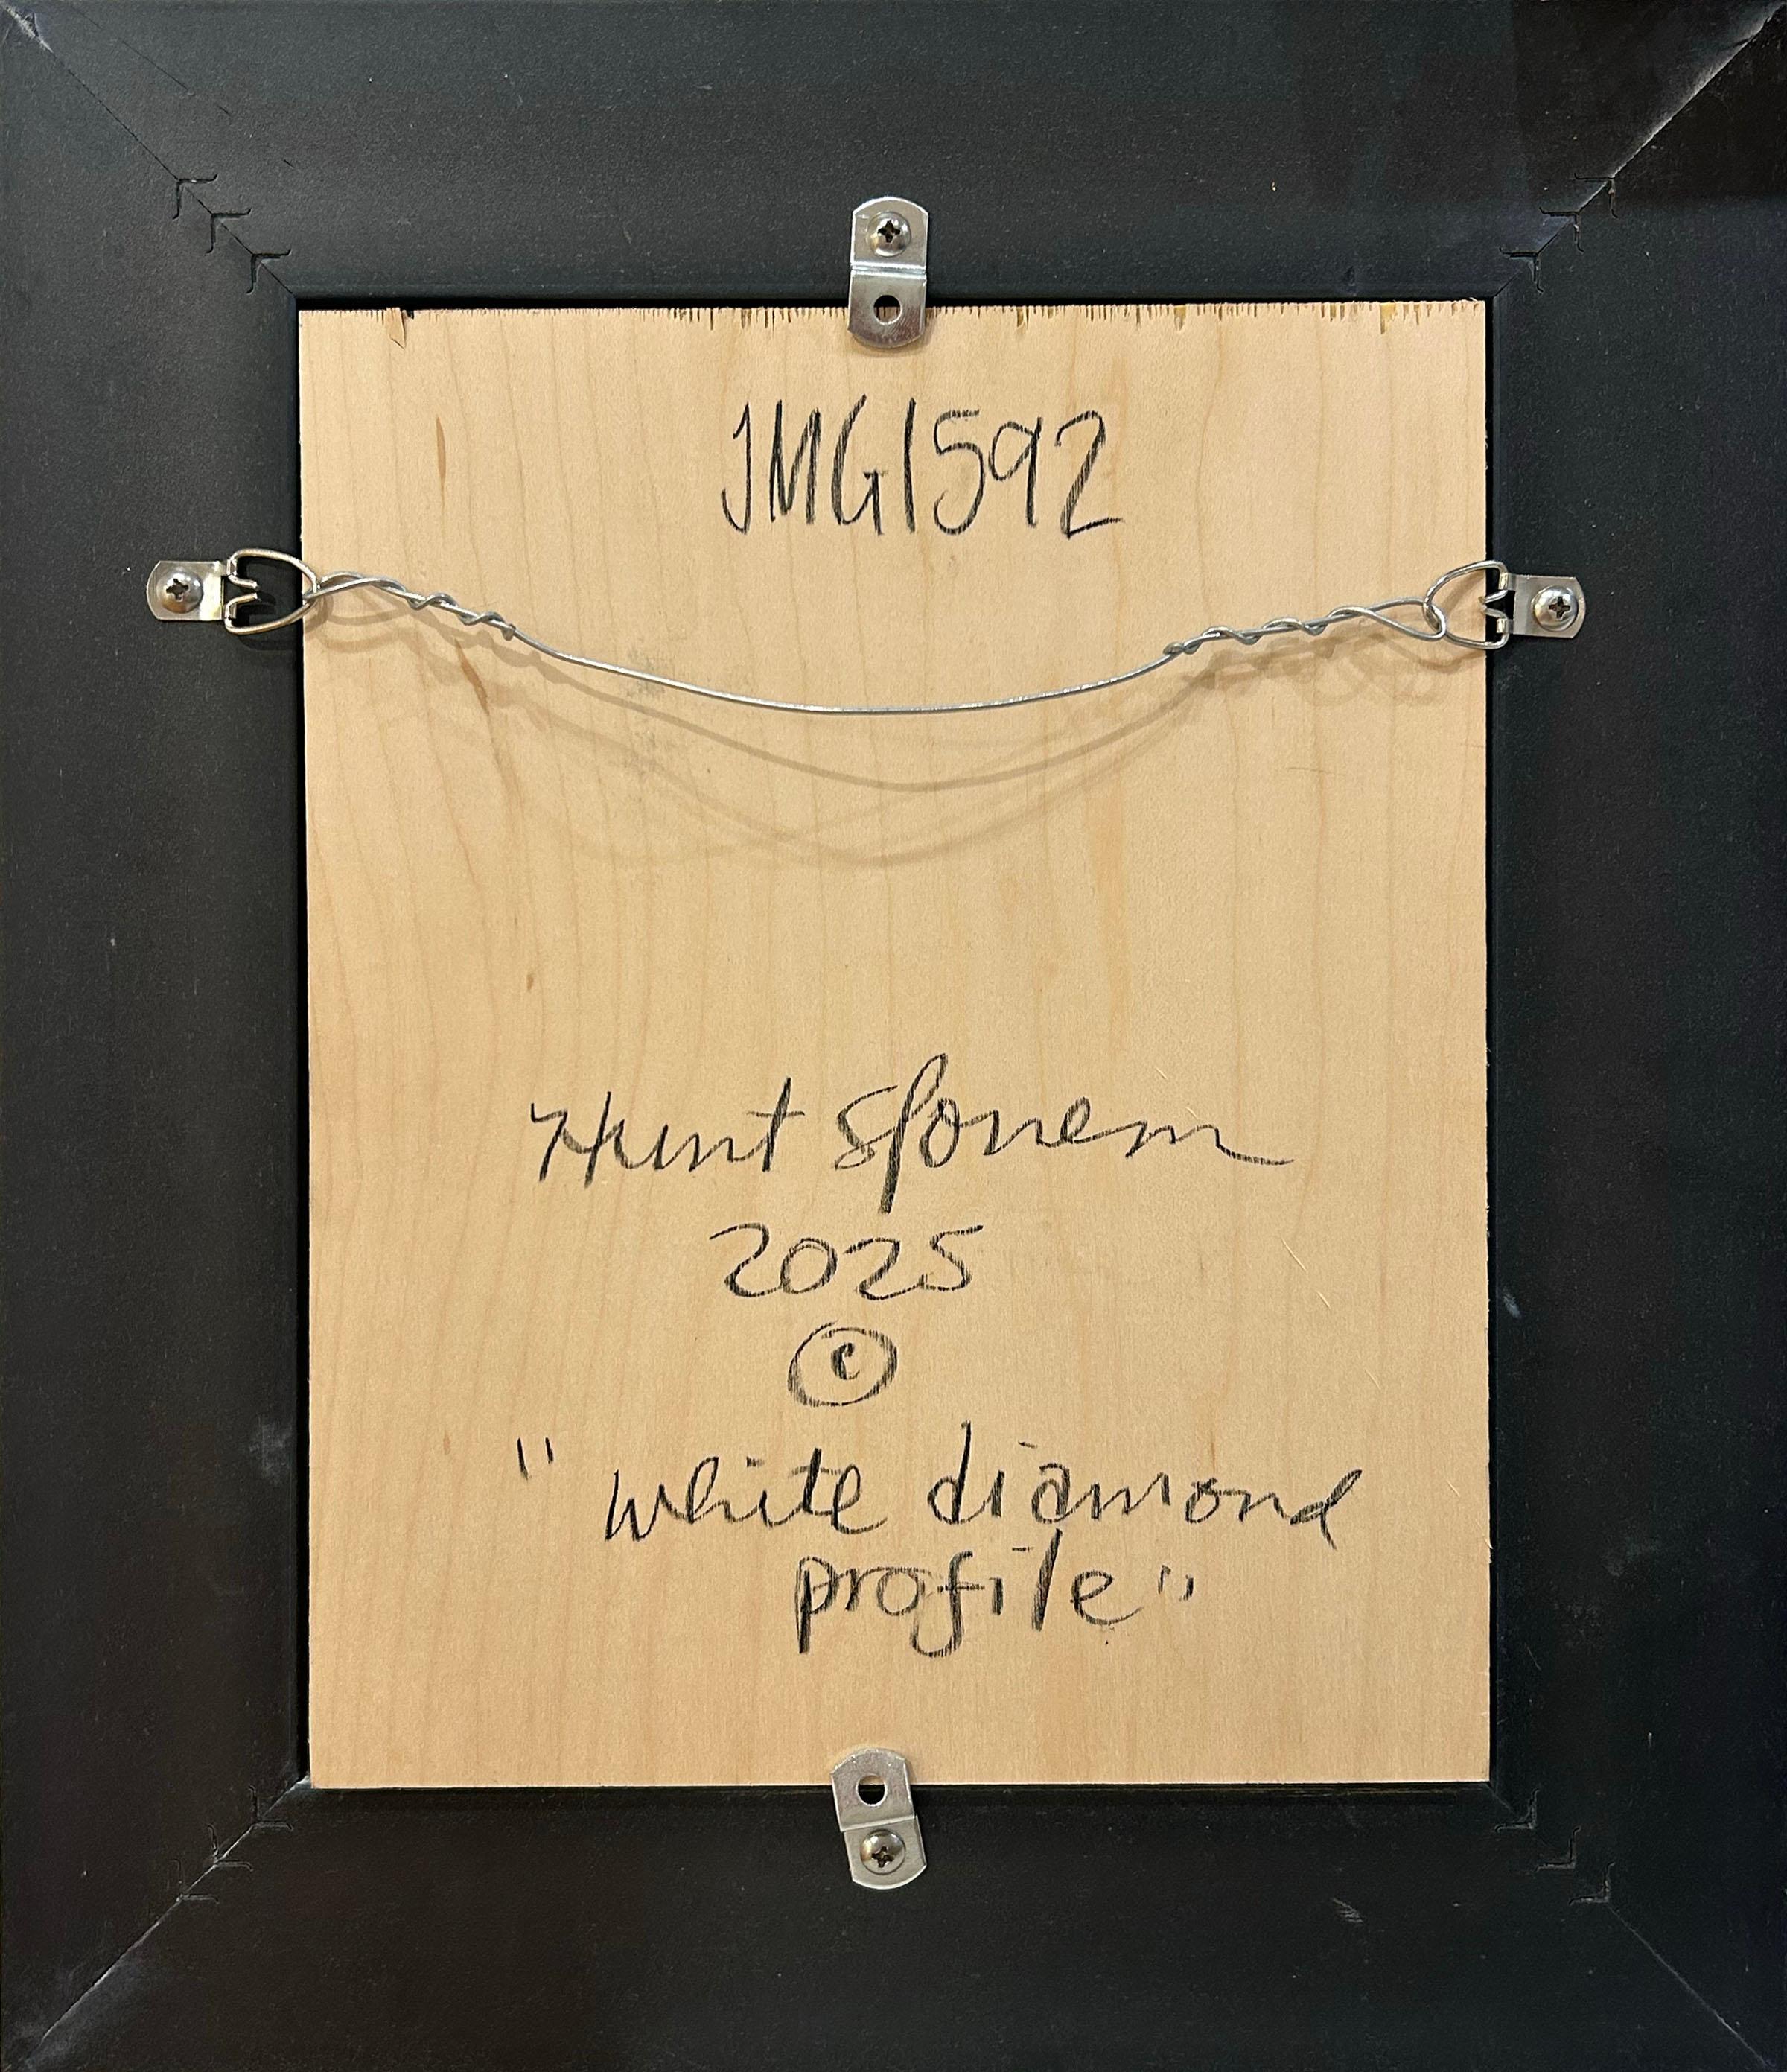 JMG1592
Hunt Slonem
2025
©
"white diamond
profile"